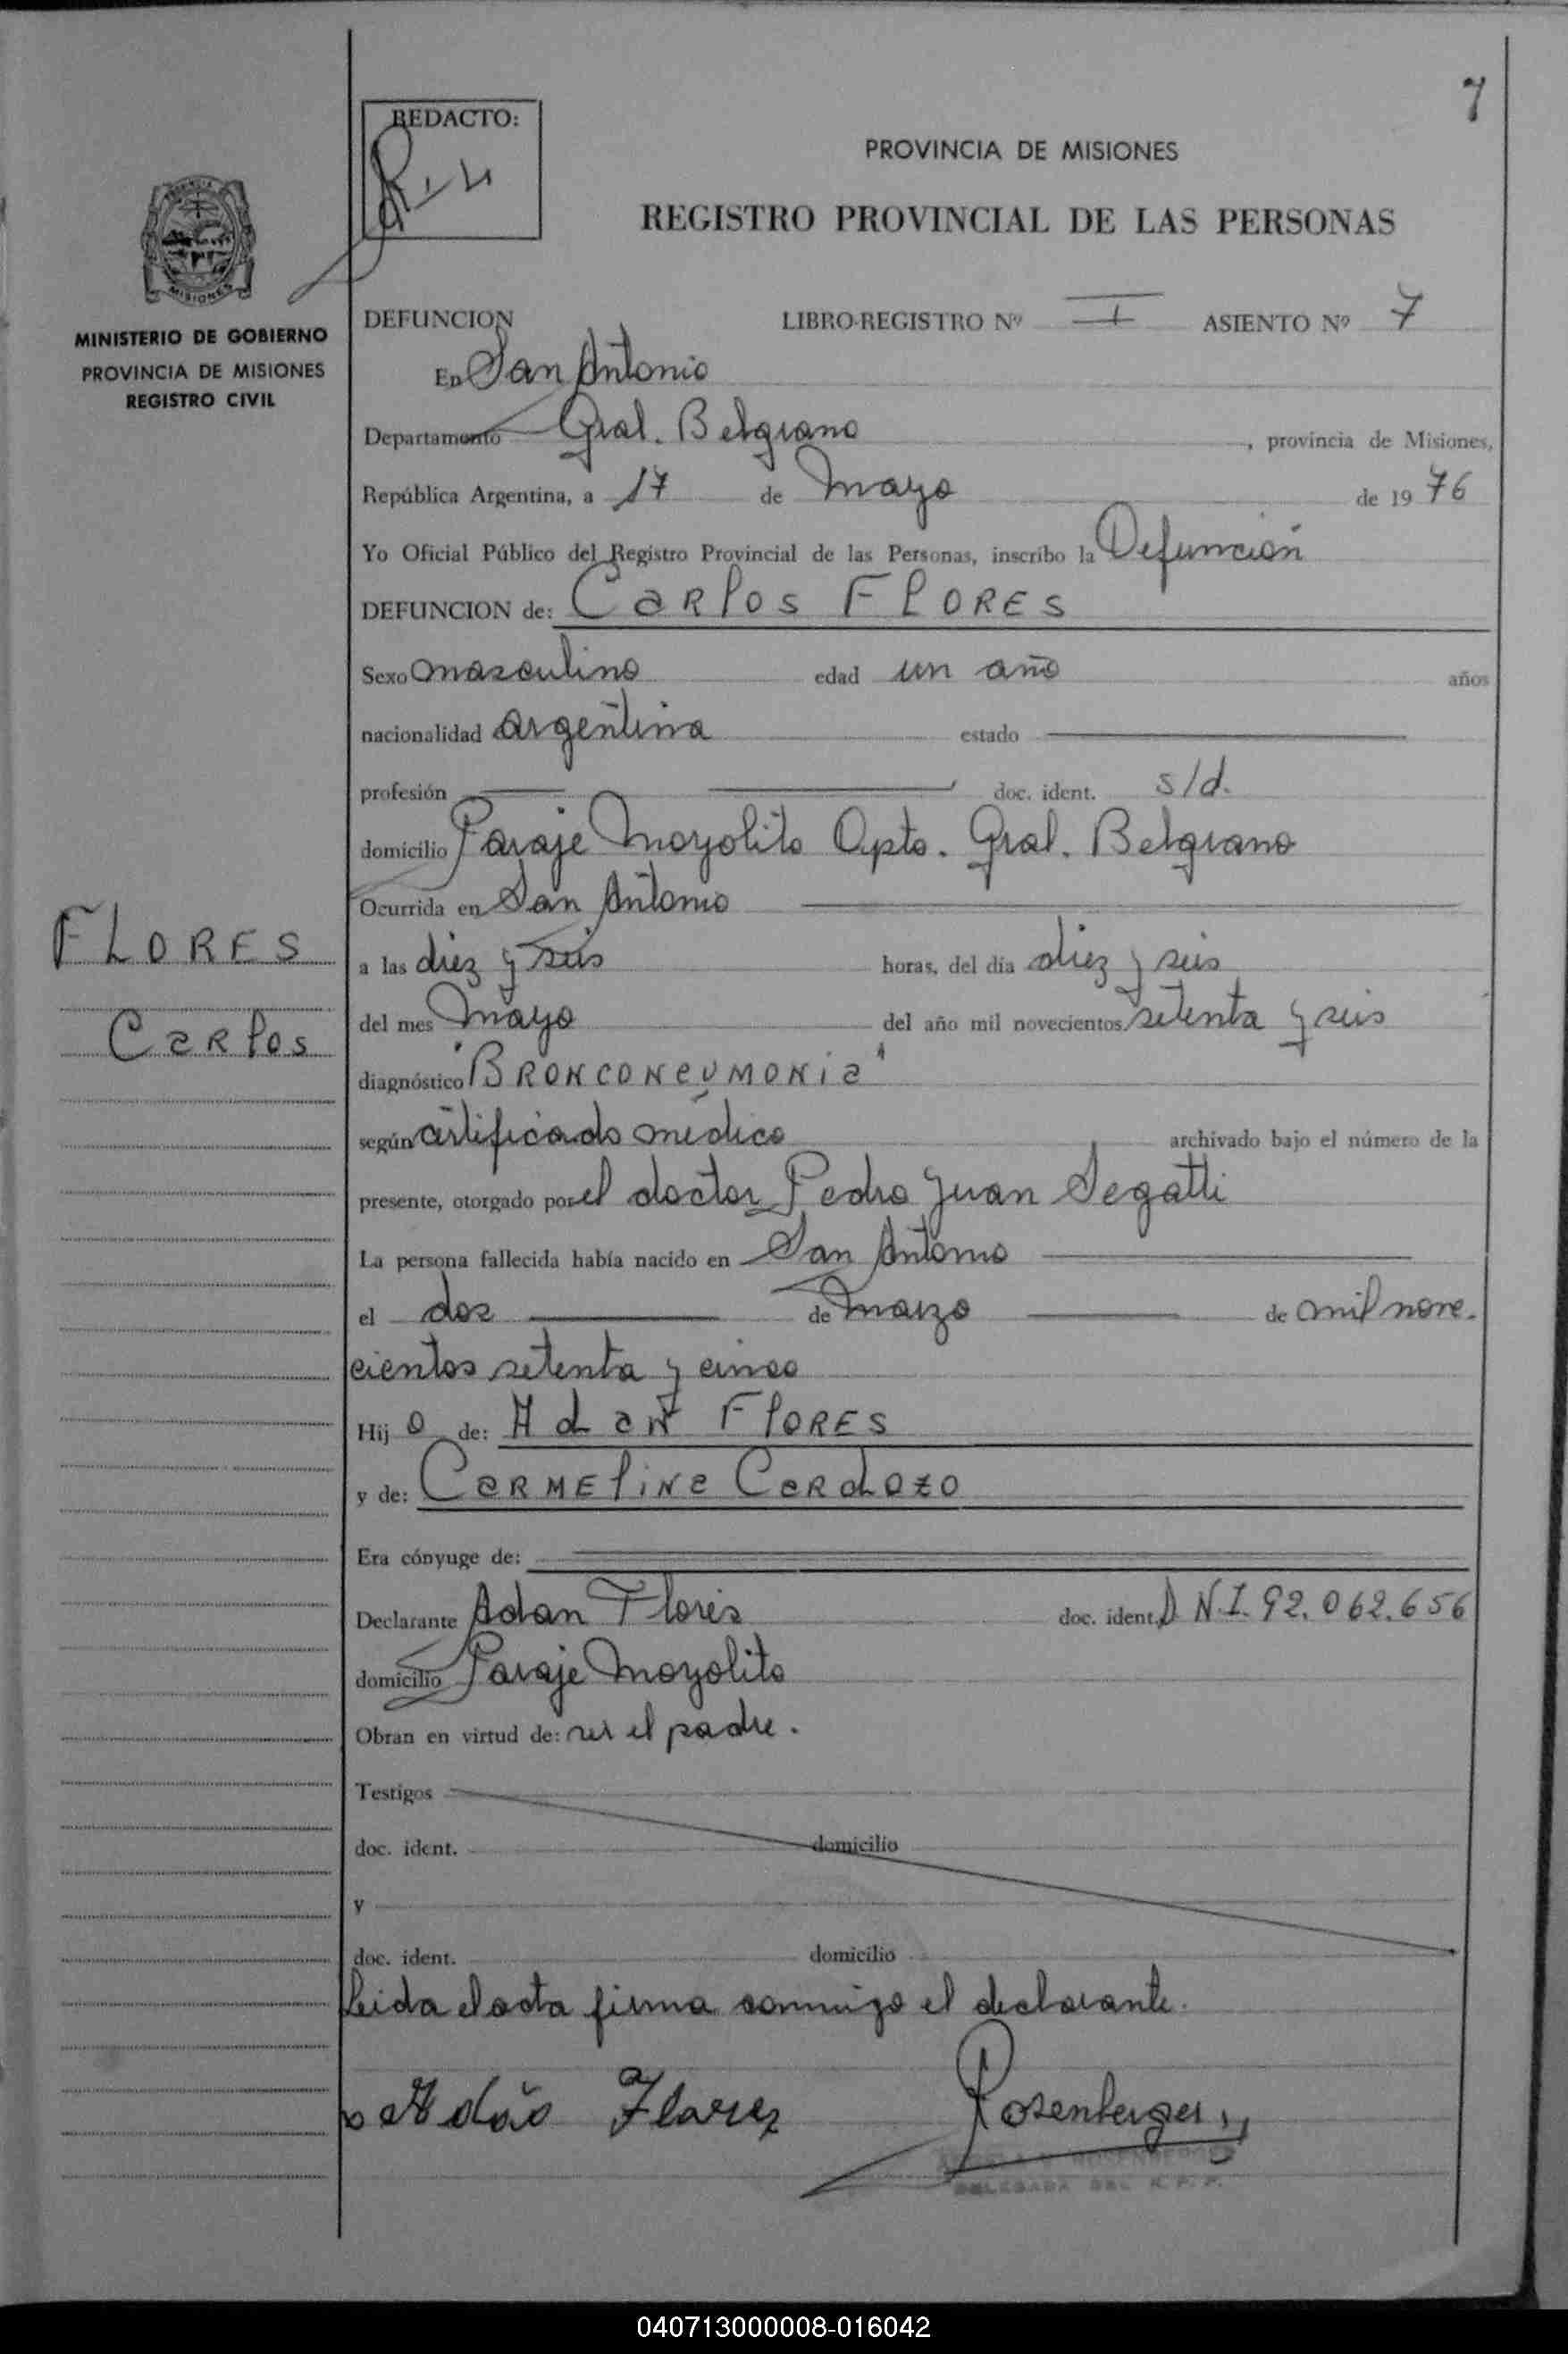 7
REDACTO:
PROVINCIA DE MISIONES
REGISTRO PROVINCIAL DE LAS PERSONAS
MISIONES
MINISTERIO DE GOBIERNO
PROVINCIA DE MISIONES
REGISTRO CIVIL
DEFUNCION LIBRO-REGISTRO Nº I ASIENTO Nº 7
En San Antonio
Departamento Gral. Belgrano, provincia de Misiones,
República Argentina, a 17 de Mayo de 1976
Yo Oficial Público del Registro Provincial de las Personas, inscribo la Defunción
DEFUNCION de: Carlos FLORES
Sexo masculino edad un año años
nacionalidad argentina estado
profesión doc. ident. s/d.
domicilio Paraje Moyolito Dpto. Gral. Belgrano
Ocurrida en San Antonio
FLORES
Carlos
a las diez y seis horas, del día diez y seis
del mes Mayo del año mil novecientos setenta y seis
diagnóstico "BRONCONEUMONIA"
según certificado médico archivado bajo el número de la
presente, otorgado por el doctor Pedro Juan Segatti
La persona fallecida había nacido en San Antonio
el dos de Marzo de mil nove-
cientos setenta y cinco
Hijo de: Adan FLORES
y de: CARMELINA Cardozo
Era cónyuge de:
Declarante Adan Flores doc. ident. D.N.I. 92.062.656
domicilio Paraje Moyolito
Obran en virtud de: ser el padre.
Testigos
doc. ident. domicilio
y
doc. ident. domicilio
Leida el acta firma conmigo el declarante.
Adão Florez Rosenberger
DELEGADA DEL R. P. P.
040713000008-016042